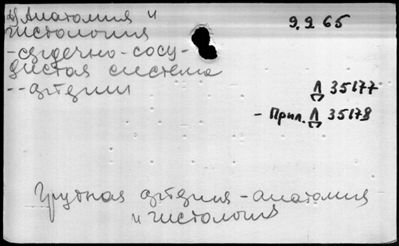 1) Анатомия и
гистология
9.2 65
-сердечно-сосу-
дистая система
--артерии
Л 35177
- Прил. Л 35178
Грудная артерия-анатомия
и гистология